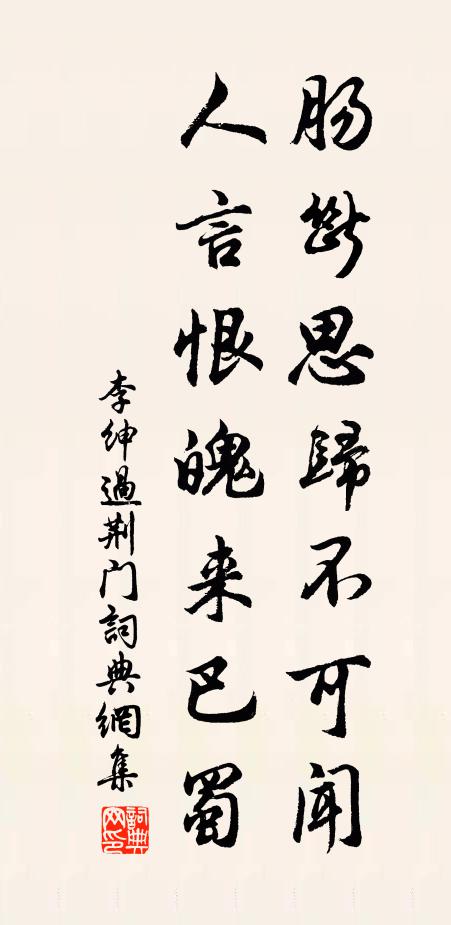 肠斷思歸不可闻
人言恨魄来巴蜀
李紳過荆门詞典網集
詞典網印